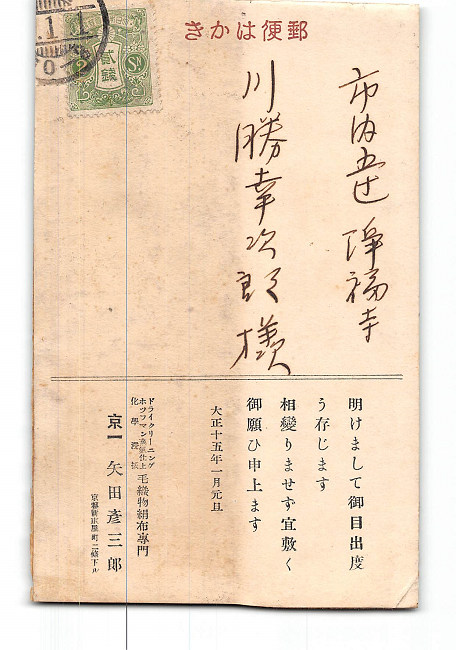 郵便はかき
1.1
貳錢
市内五辻 浄福寺
川勝幸次郎様
明けまして御目出度
う存じます
相變りませず宜敷く
御願ひ申上ます
大正十五年一月元旦
ドライクリーニング
ホツフマン蒸氣仕上
化學
毛織物絹布專門
京一 矢田彥三郎
二條下ル